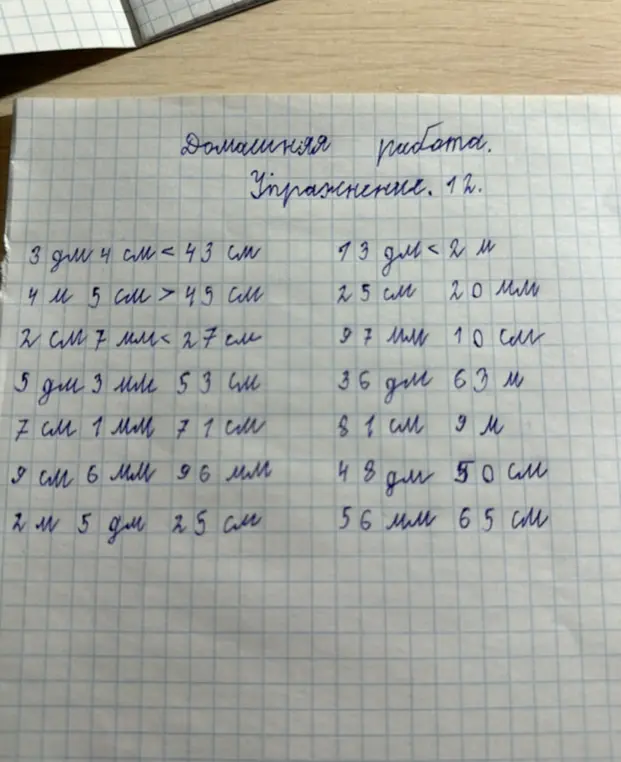 Домашняя работа.
Упражнение. 12.
3 дм 4 см < 43 см
4 м 5 см > 45 см
2 см 7 мм < 27 см
5 дм 3 мм 53 см
7 см 1 мм 71 см
9 см 6 мм 96 мм
2 м 5 дм 25 см
13 дм < 2 м
25 см 20 мм
97 мм 10 см
36 дм 63 м
81 см 9 м
48 дм 50 см
56 мм 65 см